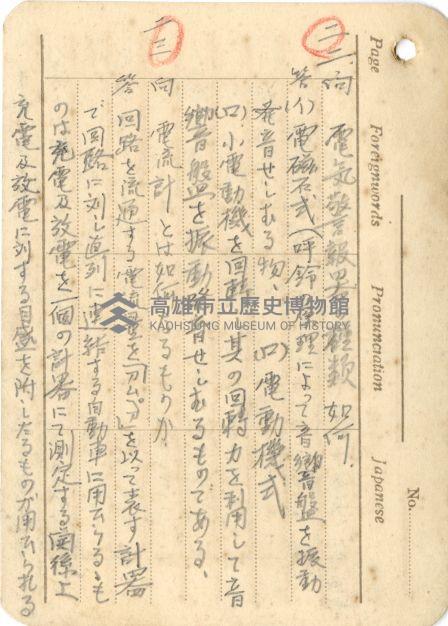 二二、問 電気警報器ノ種類 如何.
答(イ)電磁石式(呼鈴ノ原理によって音響盤を振動
発音せしむる物、(ロ)電動機式
(ロ)小電動機を回転 其の回轉力を利用して音
響盤を振動 發音せしむるものである、
二三 問 電流計とは如何 るものか
答 回路を流通する電流 量を「アンペア」を以って表す計器
で回路に対し直列に連結する自動車に用ひらるゝも
のは充電及放電を一個の計器にて測定する関係上
充電及放電に対する目盛を附したるものが用ひられる
Page Foreignwords Pronunciation Japanese
No.
高雄市立歷史博物館
KAOHSIUNG MUSEUM OF HISTORY